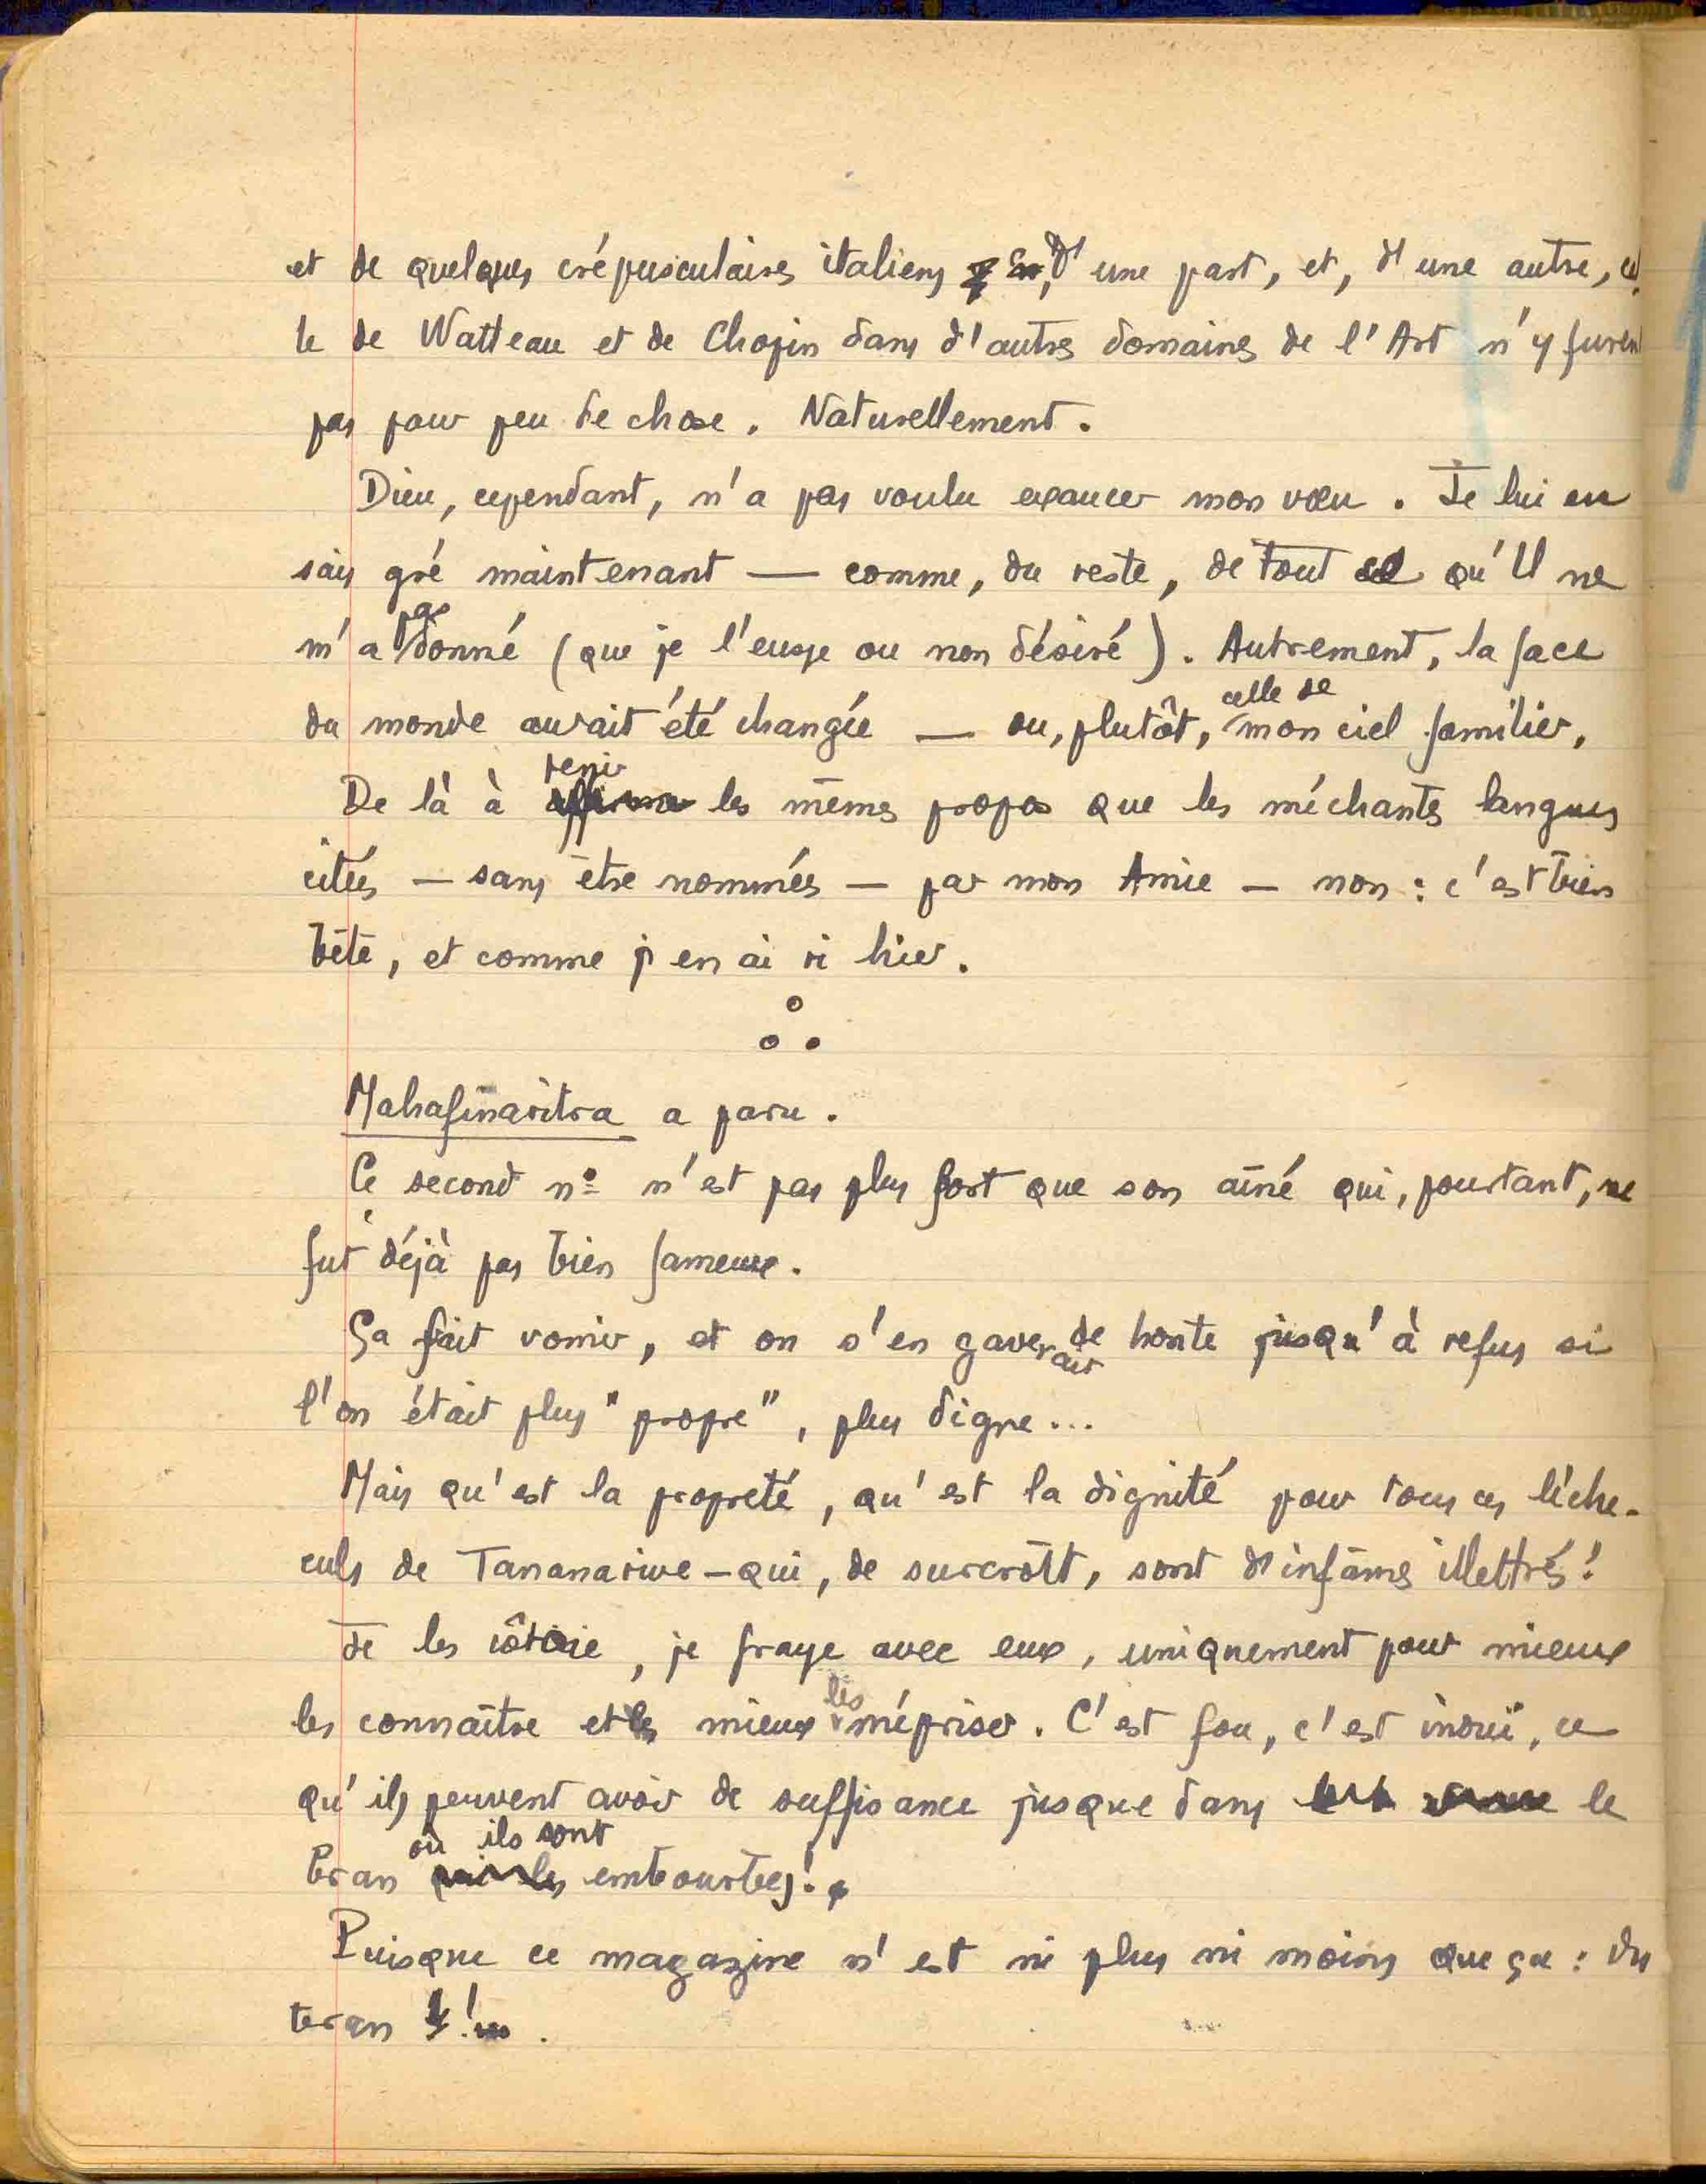 et de quelques crépusculaires italiens, d'une part, et, d'une autre, cel
le de Watteau et de Chopin dans d'autres domaines de l'Art n'y furent
pas pour peu de chose. Naturellement.
Dieu, cependant, n'a pas voulu exaucer mon vœu. Je lui en
sais gré maintenant — comme, du reste, de tout ce qu'Il ne
m'a pas donné (que je l'eusse ou non désiré). Autrement, la face
du monde aurait été changée — ou, plutôt, celle de mon ciel familier.
De là à tenir les mêmes propos que les méchantes langues
citées — sans être nommées — par mon Amie — non : c'est bien
bête, et comme j'en ai ri hier.
Mahafinaritra a paru.
Ce second nº n'est pas plus fort que son aîné qui, pourtant, ne
fut déjà pas bien fameux.
Ça fait vomir, et on s'en gaverait de honte jusqu'à refus si
l'on était plus "propre", plus digne...
Mais qu'est la propreté, qu'est la dignité pour tous ces lèche-
culs de Tananarive — qui, de surcroît, sont d'infâmes illettrés !
Je les côtoie, je fraye avec eux, uniquement pour mieux
les connaître et mieux les mépriser. C'est fou, c'est inouï, ce
qu'ils peuvent avoir de suffisance jusque dans le
bran où ils sont embourbés !
Puisque ce magazine n'est ni plus ni moins que ça : du
bran !